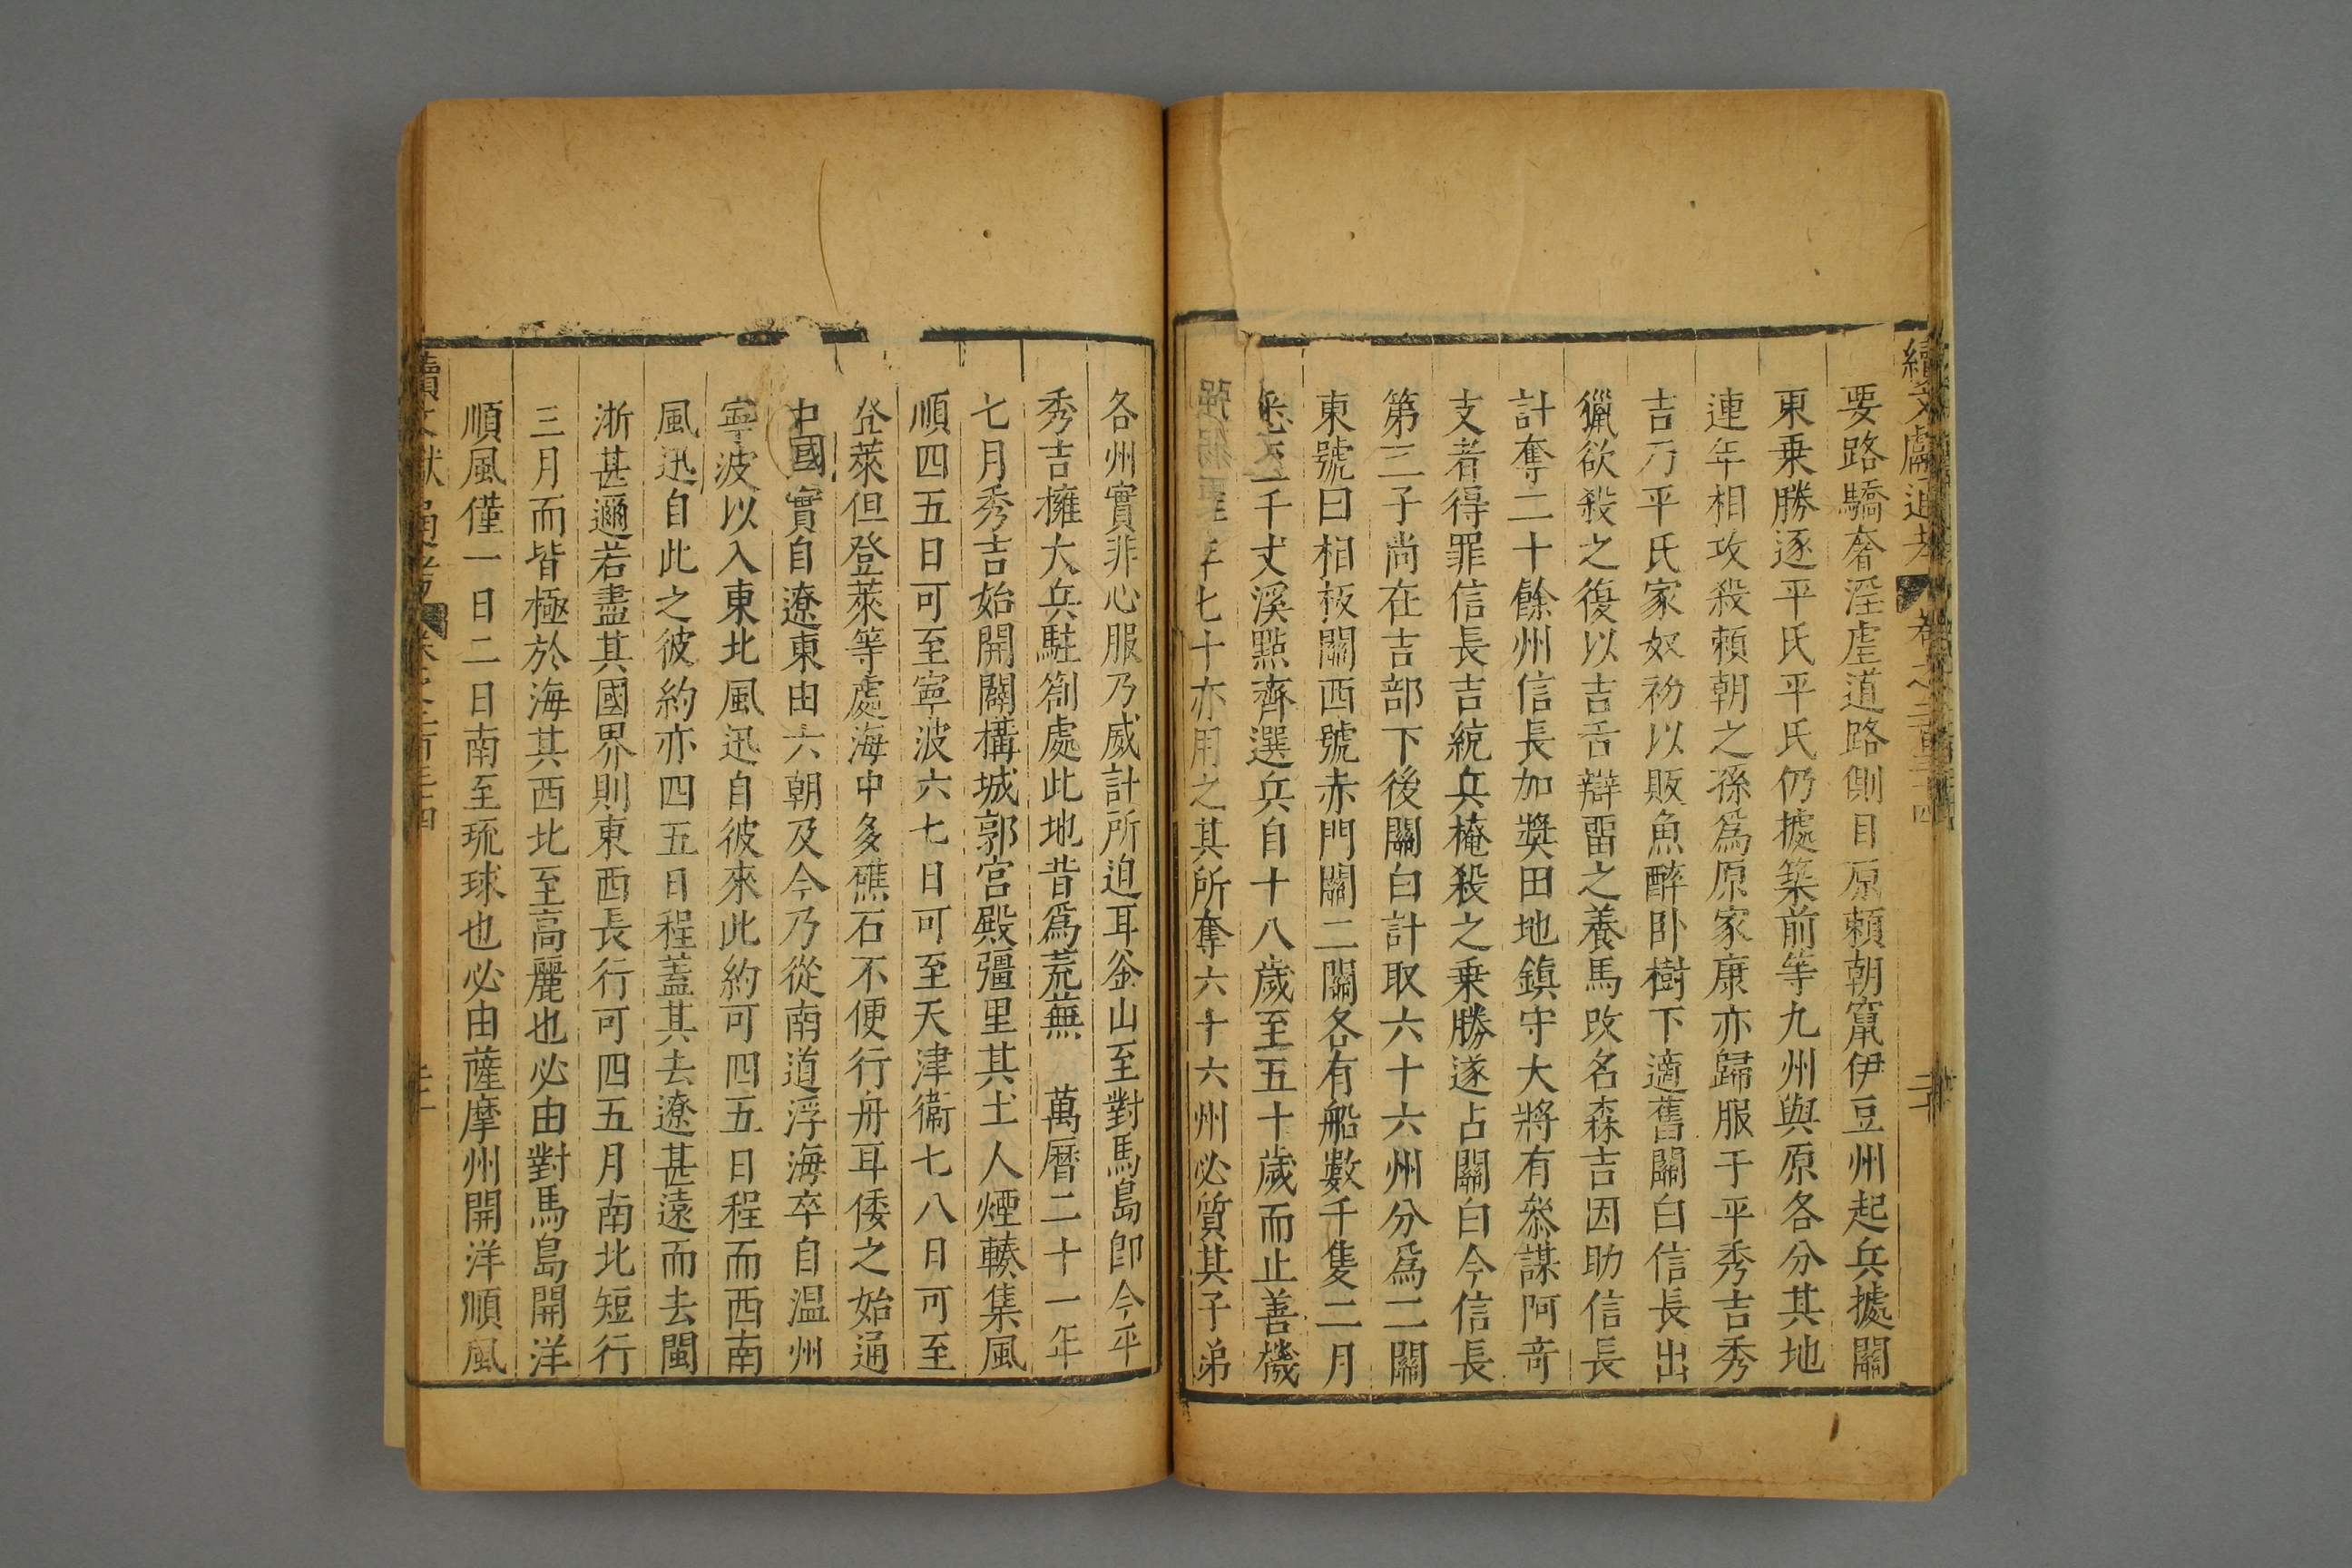 續文獻通考 卷之二百三十四
要路驕奢淫虐道路側目原賴朝竄伊豆州起兵據關
東乗勝逐平氏平氏仍據築前等九州與原各分其地
連年相攻殺賴朝之孫爲原家康亦歸服于平秀吉秀
吉乃平氏家奴初以販魚醉卧樹下適舊關白信長出
獵欲殺之復以吉舌辯畱之養馬改名森吉因助信長
計奪二十餘州信長加奬田地鎮守大將有叅謀阿奇
支者得罪信長吉統兵掩殺之乗勝遂占關白今信長
第三子尚在吉部下後關白計取六十六州分爲二關
東號曰相板關西號赤門關二關各有船數千隻二月
千丈溪點齊選兵自十八歲至五十歲而止善機
年七十亦用之其所奪六十六州必質其子弟
各州實非心服乃威計所迫耳釡山至對馬島卽今平
秀吉擁大兵駐劄處此地昔爲荒蕪 萬曆二十一年
七月秀吉始開闢構城郭宫殿彊里其土人煙輳集風
順四五日可至寧波六七日可至天津衞七八日可至
登萊但登萊等處海中多礁石不便行舟耳倭之始通
中國實自遼東由六朝及今乃從南道浮海卒自温州
寧波以入東北風迅自彼來此約可四五日程而西南
風迅自此之彼約亦四五日程葢其去遼甚遠而去閩
浙甚邇若盡其國界則東西長行可四五月南北短行
三月而皆極於海其西北至高麗也必由對馬島開洋
順風僅一日二日南至琉球也必由薩摩州開洋順風
續文獻通考 卷之二百三十四